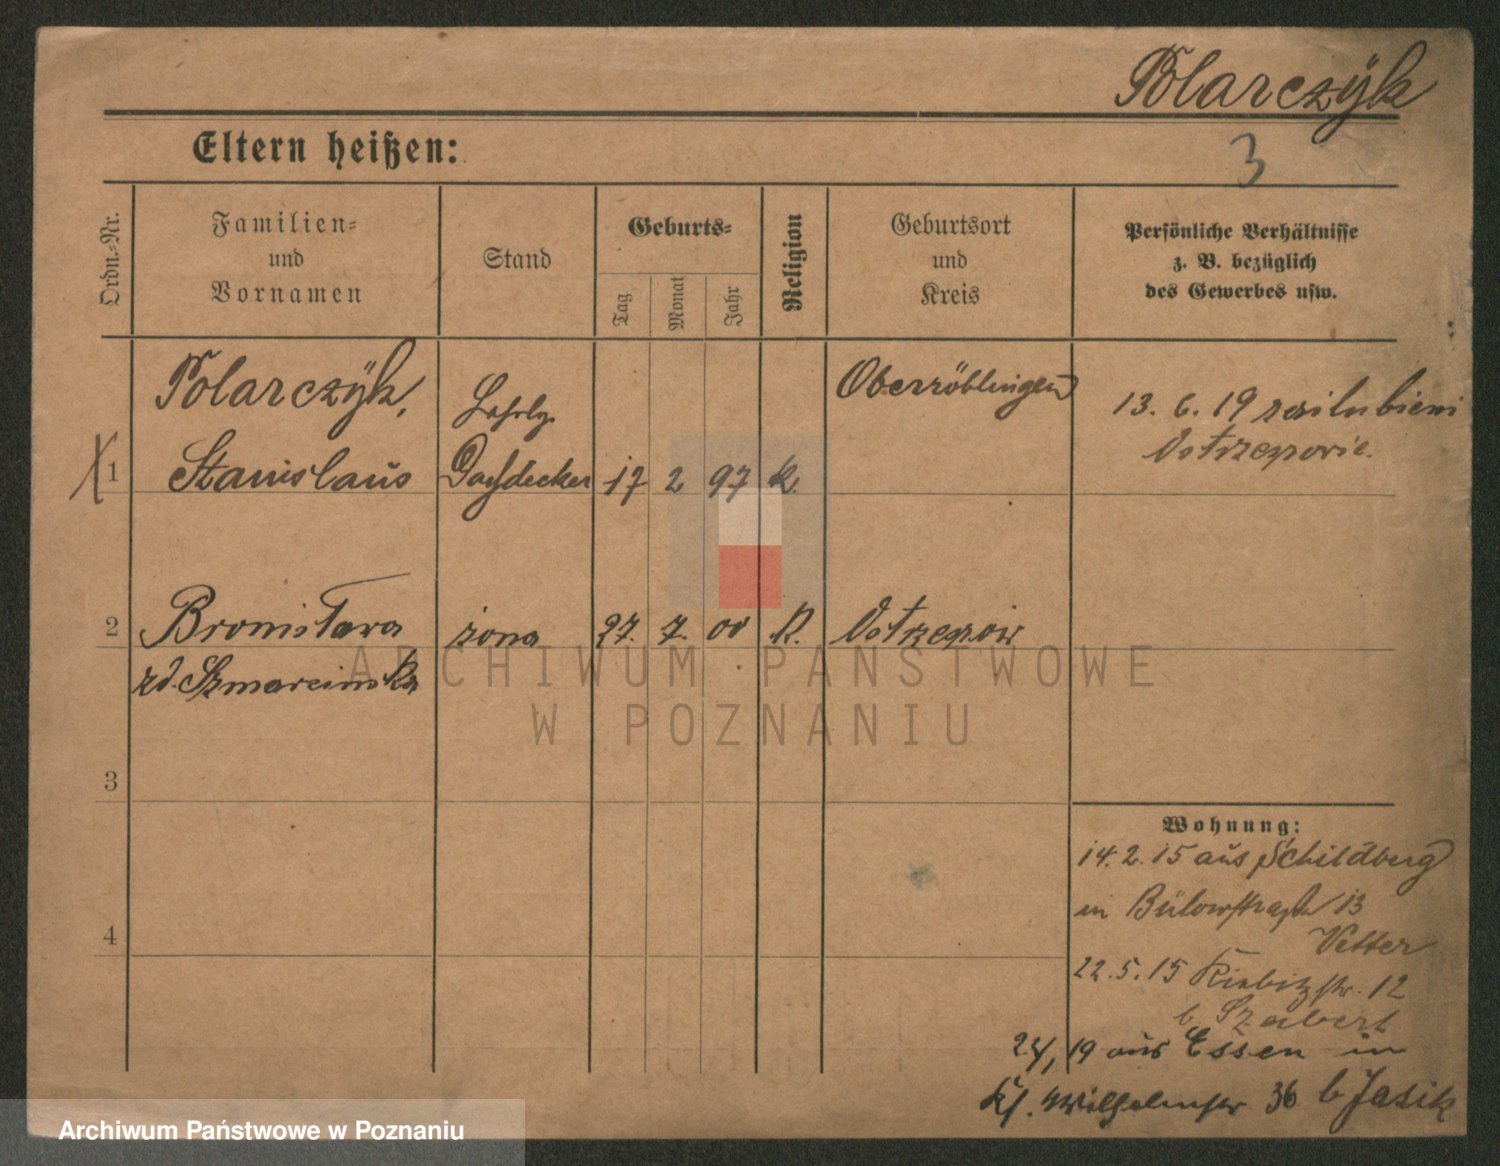 Polarczÿk
Eltern heißen:
3
Ordn.=Nr.
Familien=
und
Vornamen
Stand
Geburts=
Tag
Monat
Jahr
Religion
Geburtsort
und
Kreis
Persönliche Verhältnisse
z. B. bezüglich
des Gewerbes usw.
1
Polarczÿk,
Stanislaus
Lehrlg.
Dachdecker
17
2
97
k.
Oberröblingen
13. 6. 19
2
Bronisława
zd. Szmarcinska
żona
27.
7.
00
K.
3
4
Wohnung:
14. 2. 15 aus Schildberg
in Bülowstraße 13
Vetter
22. 5. 15 Kiebitzstr. 12
b. Szabert
19 aus Essen in
Kl. Wilhelmstr 36 b Jasik
ARCHIWUM PAŃSTWOWE
W POZNANIU
Archiwum Państwowe w Poznaniu